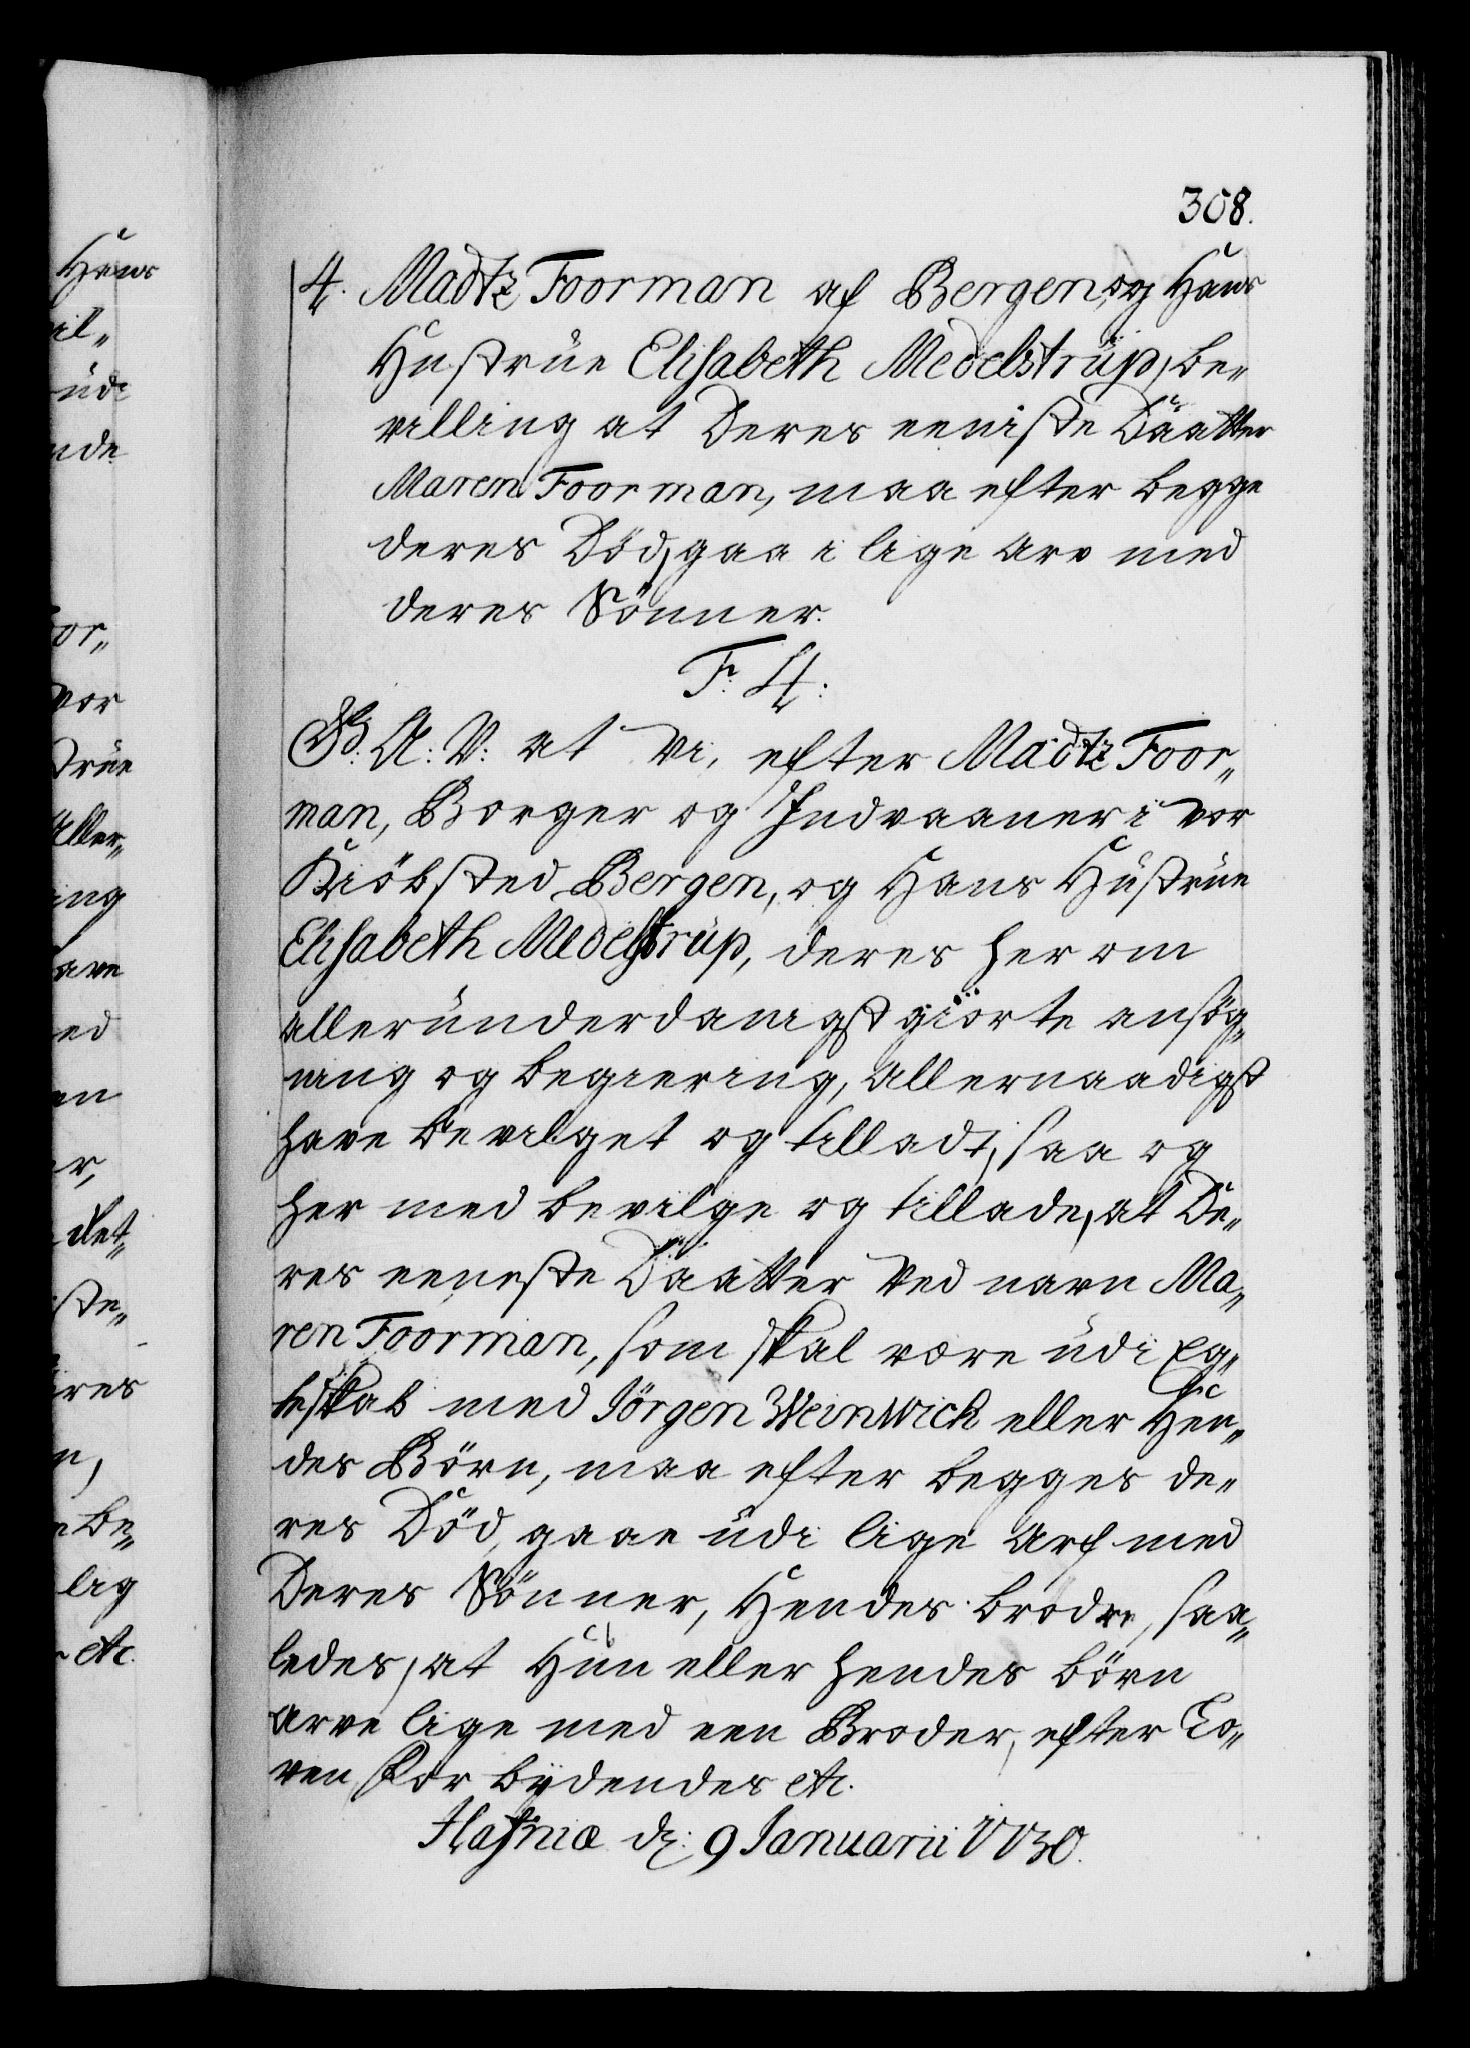 308.
4. Madtz Foorman af Bergen, og Hans
Hustrüe Elisabeth Medelstrüp, be„
villing at Deres eeniste Daatter
Maren Foorman, maa efter begge
deres Död, gaa i lige Arv med
deres Sönner.
F. 4:
G. A. V: at Vi, efter Madtz Foor„
man, Borger og Indvaaner i vor
Kiöbsted Bergen, og Hans Hüstrüe
Elisabeth Medelstrüp, deres her om
alleründerdanigst giorte ansög„
ning og begiering, Allernaadigst
have bevilget og tilladt, saa og
her med bevilge og tillade, at De„
res eeneste Daatter Ved navn Ma„
ren Foorman, som skal være üdi Eg„
teskab med Jörgen Weinwich eller Hen„
des Börn, maa efter begges de„
res Död, gaae üdi lige Arf med
Deres Sönner, Hendes brödre, saa„
ledes, at Hün eller hendes börn
arve lige med een Broder, efter Lo„
ven, For bÿdendes etc.
Hafniæ d: 9 Januarii 1730.
Hans
il„
üdi
nde
or„
vor
strüe
Aller„
ing
have
ed
en
er,
det„
ste„
res
n,
be„
lig
etc.